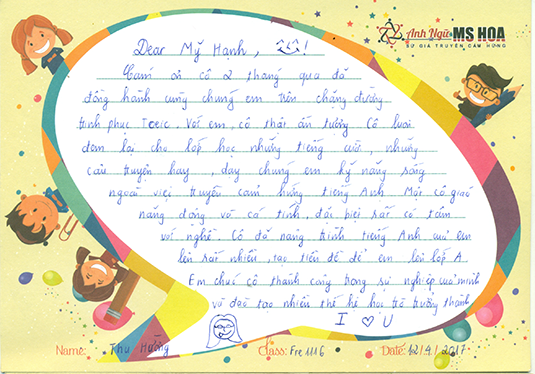 Anh Ngữ MS HOA
SỨ GIẢ TRUYỀN CẢM HỨNG
Dear Mỹ Hạnh,
Cảm ơn cô 2 tháng qua đã
đồng hành cùng chúng em trên chặng đường
chinh phục Toeic. Với em, cô thật ấn tượng. Cô luôn
đem lại cho lớp học những tiếng cười, những
câu truyện hay, dạy chúng em kỹ năng sống
ngoài việc truyền cảm hứng tiếng Anh. Một cô giáo
năng động và cá tính, đặc biệt rất có tâm
với nghề. Cô đã nâng trình tiếng Anh của em
lên rất nhiều, tạo tiền đề để em lên lớp A.
Em chúc cô thành công trong sự nghiệp của mình
và đào tạo nhiều thế hệ học trò trưởng thành
I ♡ U
Name: Thu Hường Class: Pre 1116 Date: 12/4/2017